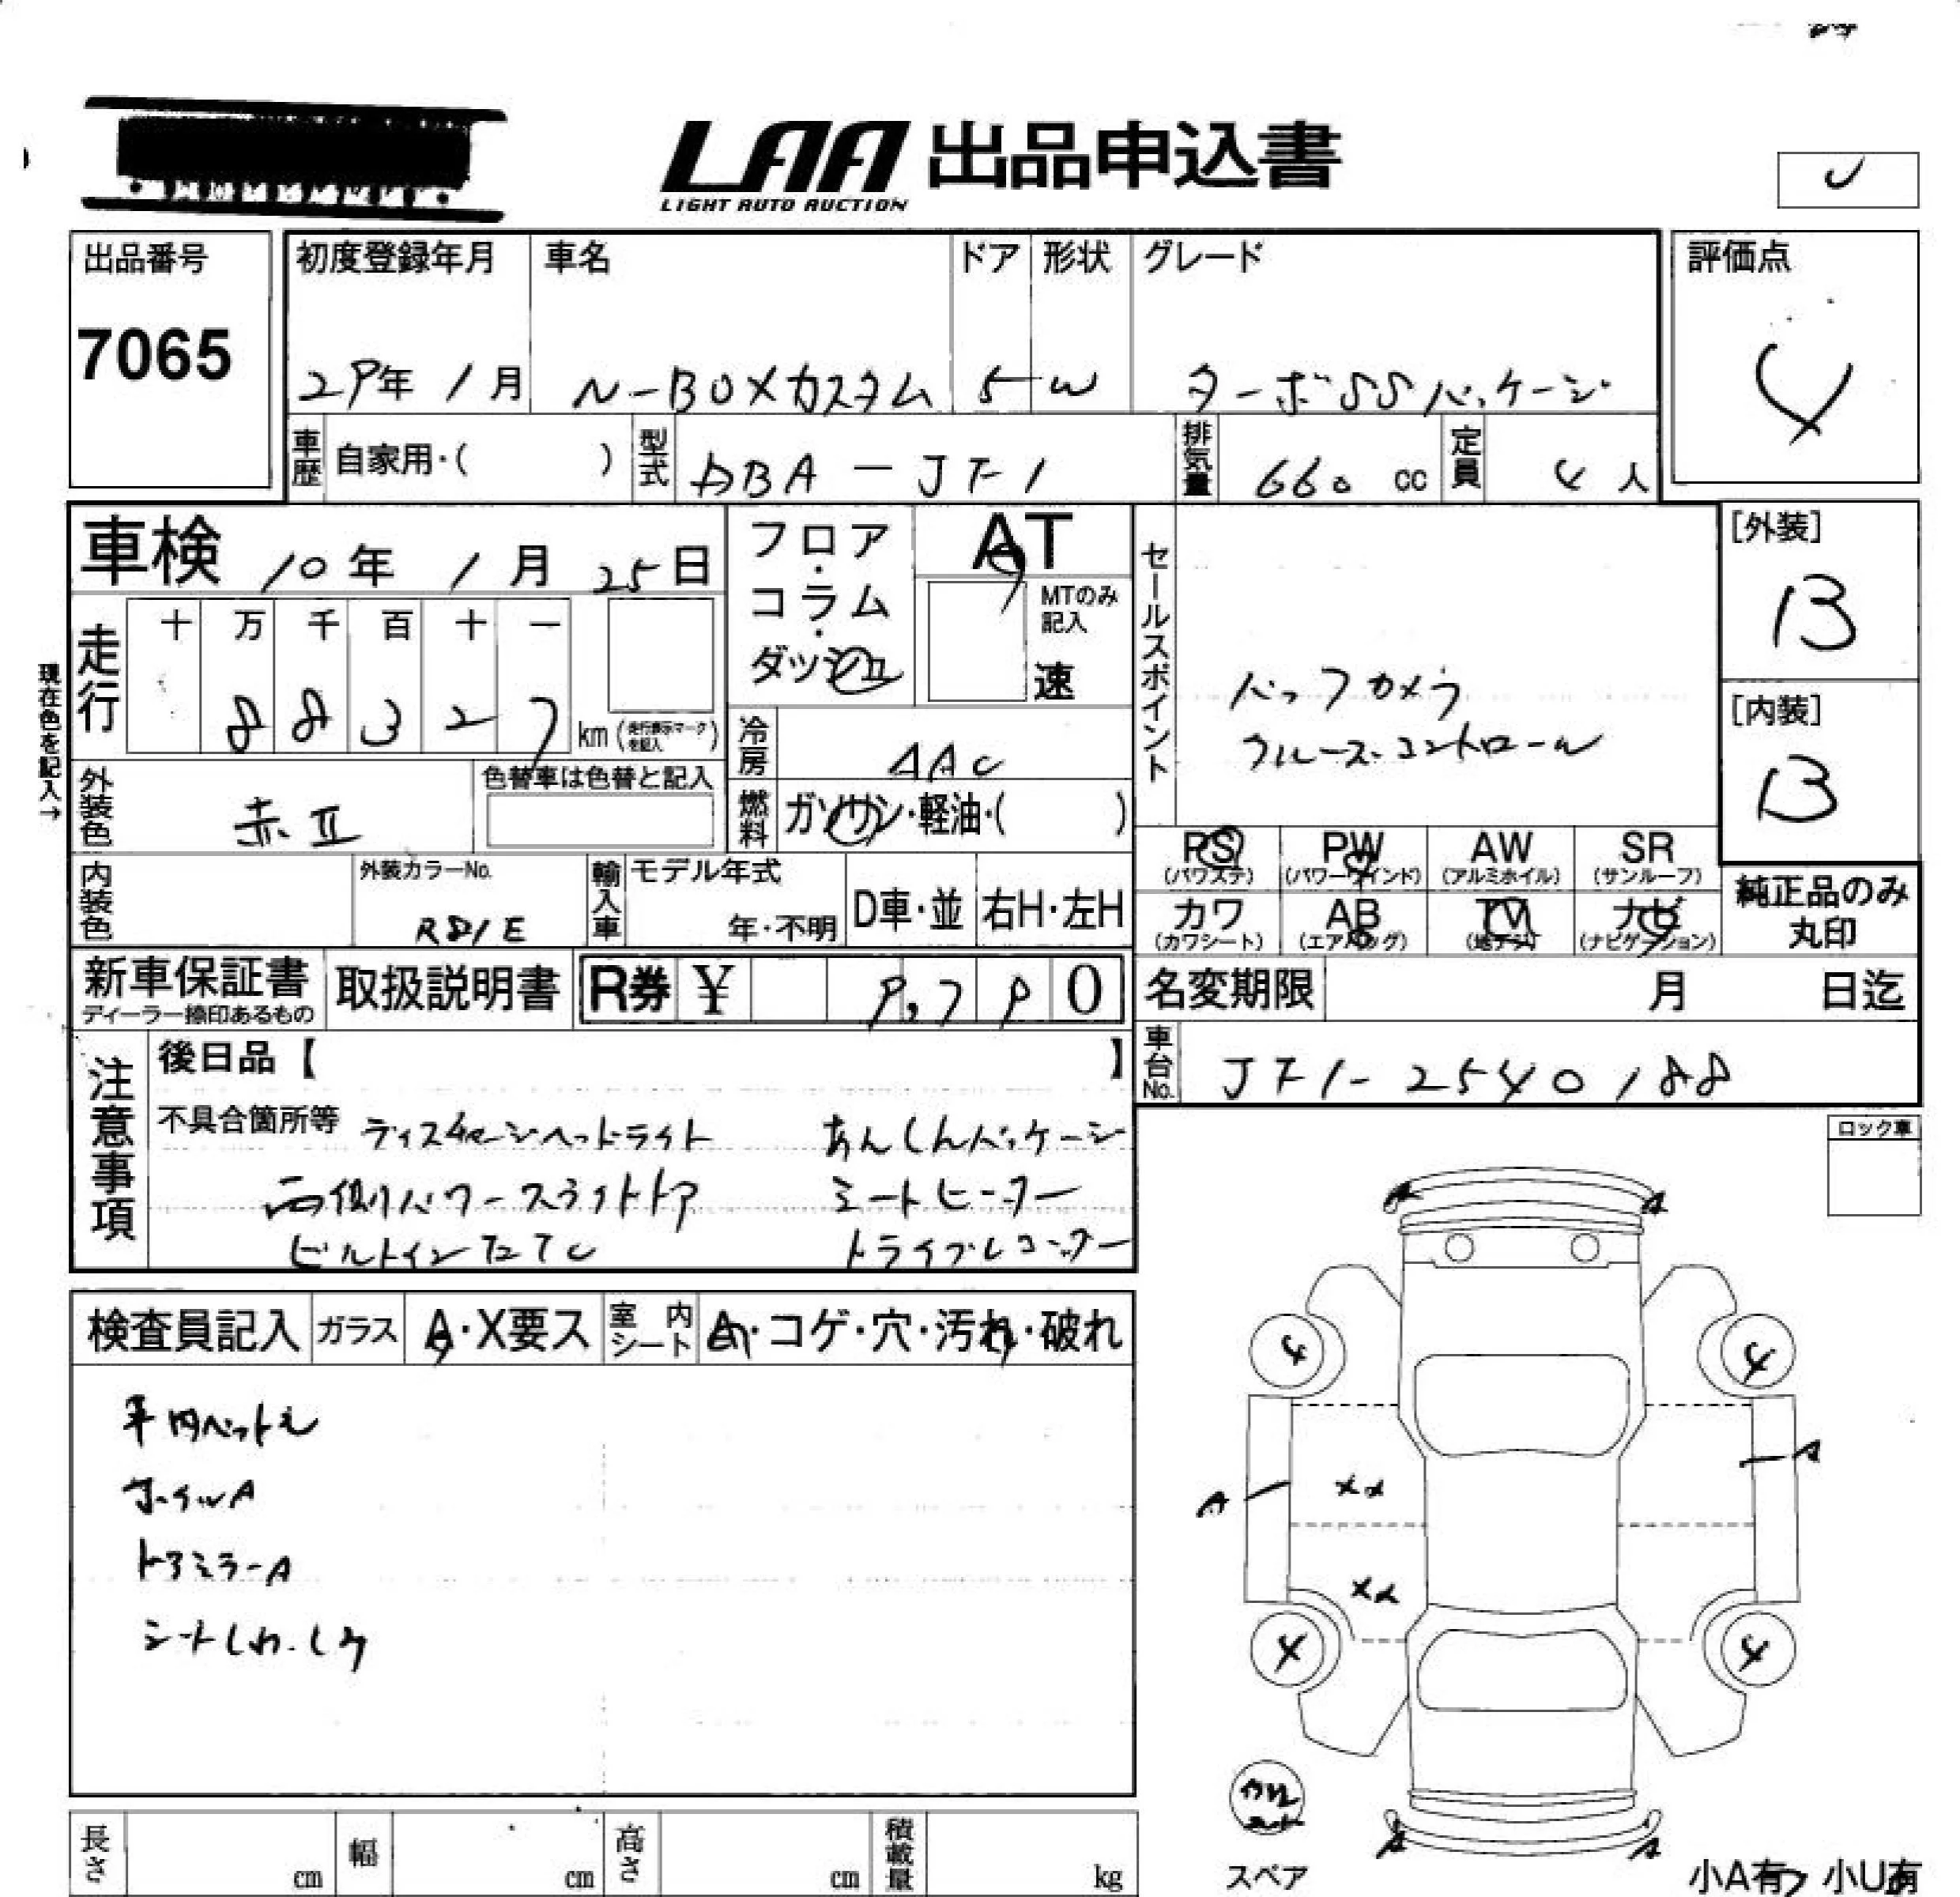 LAA 出品申込書
LIGHT AUTO AUCTION
出品番号
7065
初度登録年月
29年 1月
車名
N-BOXカスタム
ドア
5
形状
W
グレード
ターボSSパッケージ
評価点
4
車歴
自家用・( )
型式
DBA-JF1
排気量
660 cc
定員
4 人
車検 10年 1月 25日
フロア・コラム・ダッシュ
AT
MTのみ記入
速
セールスポイント
バックカメラ
クルーズコントロール
[外装]
B
[内装]
B
現在色を記入→
走行
十 万 千 百 十 一
8 8 3 2 7 km (走行表示マークを記入)
冷房
AAC
外装色
赤II
色替車は色替と記入
燃料
ガソリン・軽油・( )
PS (パワステ)
PW (パワーウインド)
AW (アルミホイル)
SR (サンルーフ)
カワ (カワシート)
AB (エアバッグ)
TV (地デジ)
ナビ (ナビゲーション)
純正品のみ丸印
内装色
外装カラーNo.
輸入車
モデル年式
年・不明
D車・並
右H・左H
新車保証書
ディーラー捺印あるもの
取扱説明書
R券 ¥ 9,790
名変期限 月 日迄
車台No.
JF1-2540188
注意事項
後日品【 】
不具合箇所等
ディスチャージヘッドライト あんしんパッケージ
両側パワースライドドア シートヒーター
ビルトインETC ドライブレコーダー
ロック車
検査員記入
ガラス
A・X要ス
室内シート
A・コゲ・穴・汚れ・破れ
ホイルA
ドアミラーA
シートしわ・しみ
A A
4 4
A
A
XX
XX
4 4
A A
スペア
小A有 小U有
長さ cm
幅 cm
高さ cm
積載量 kg